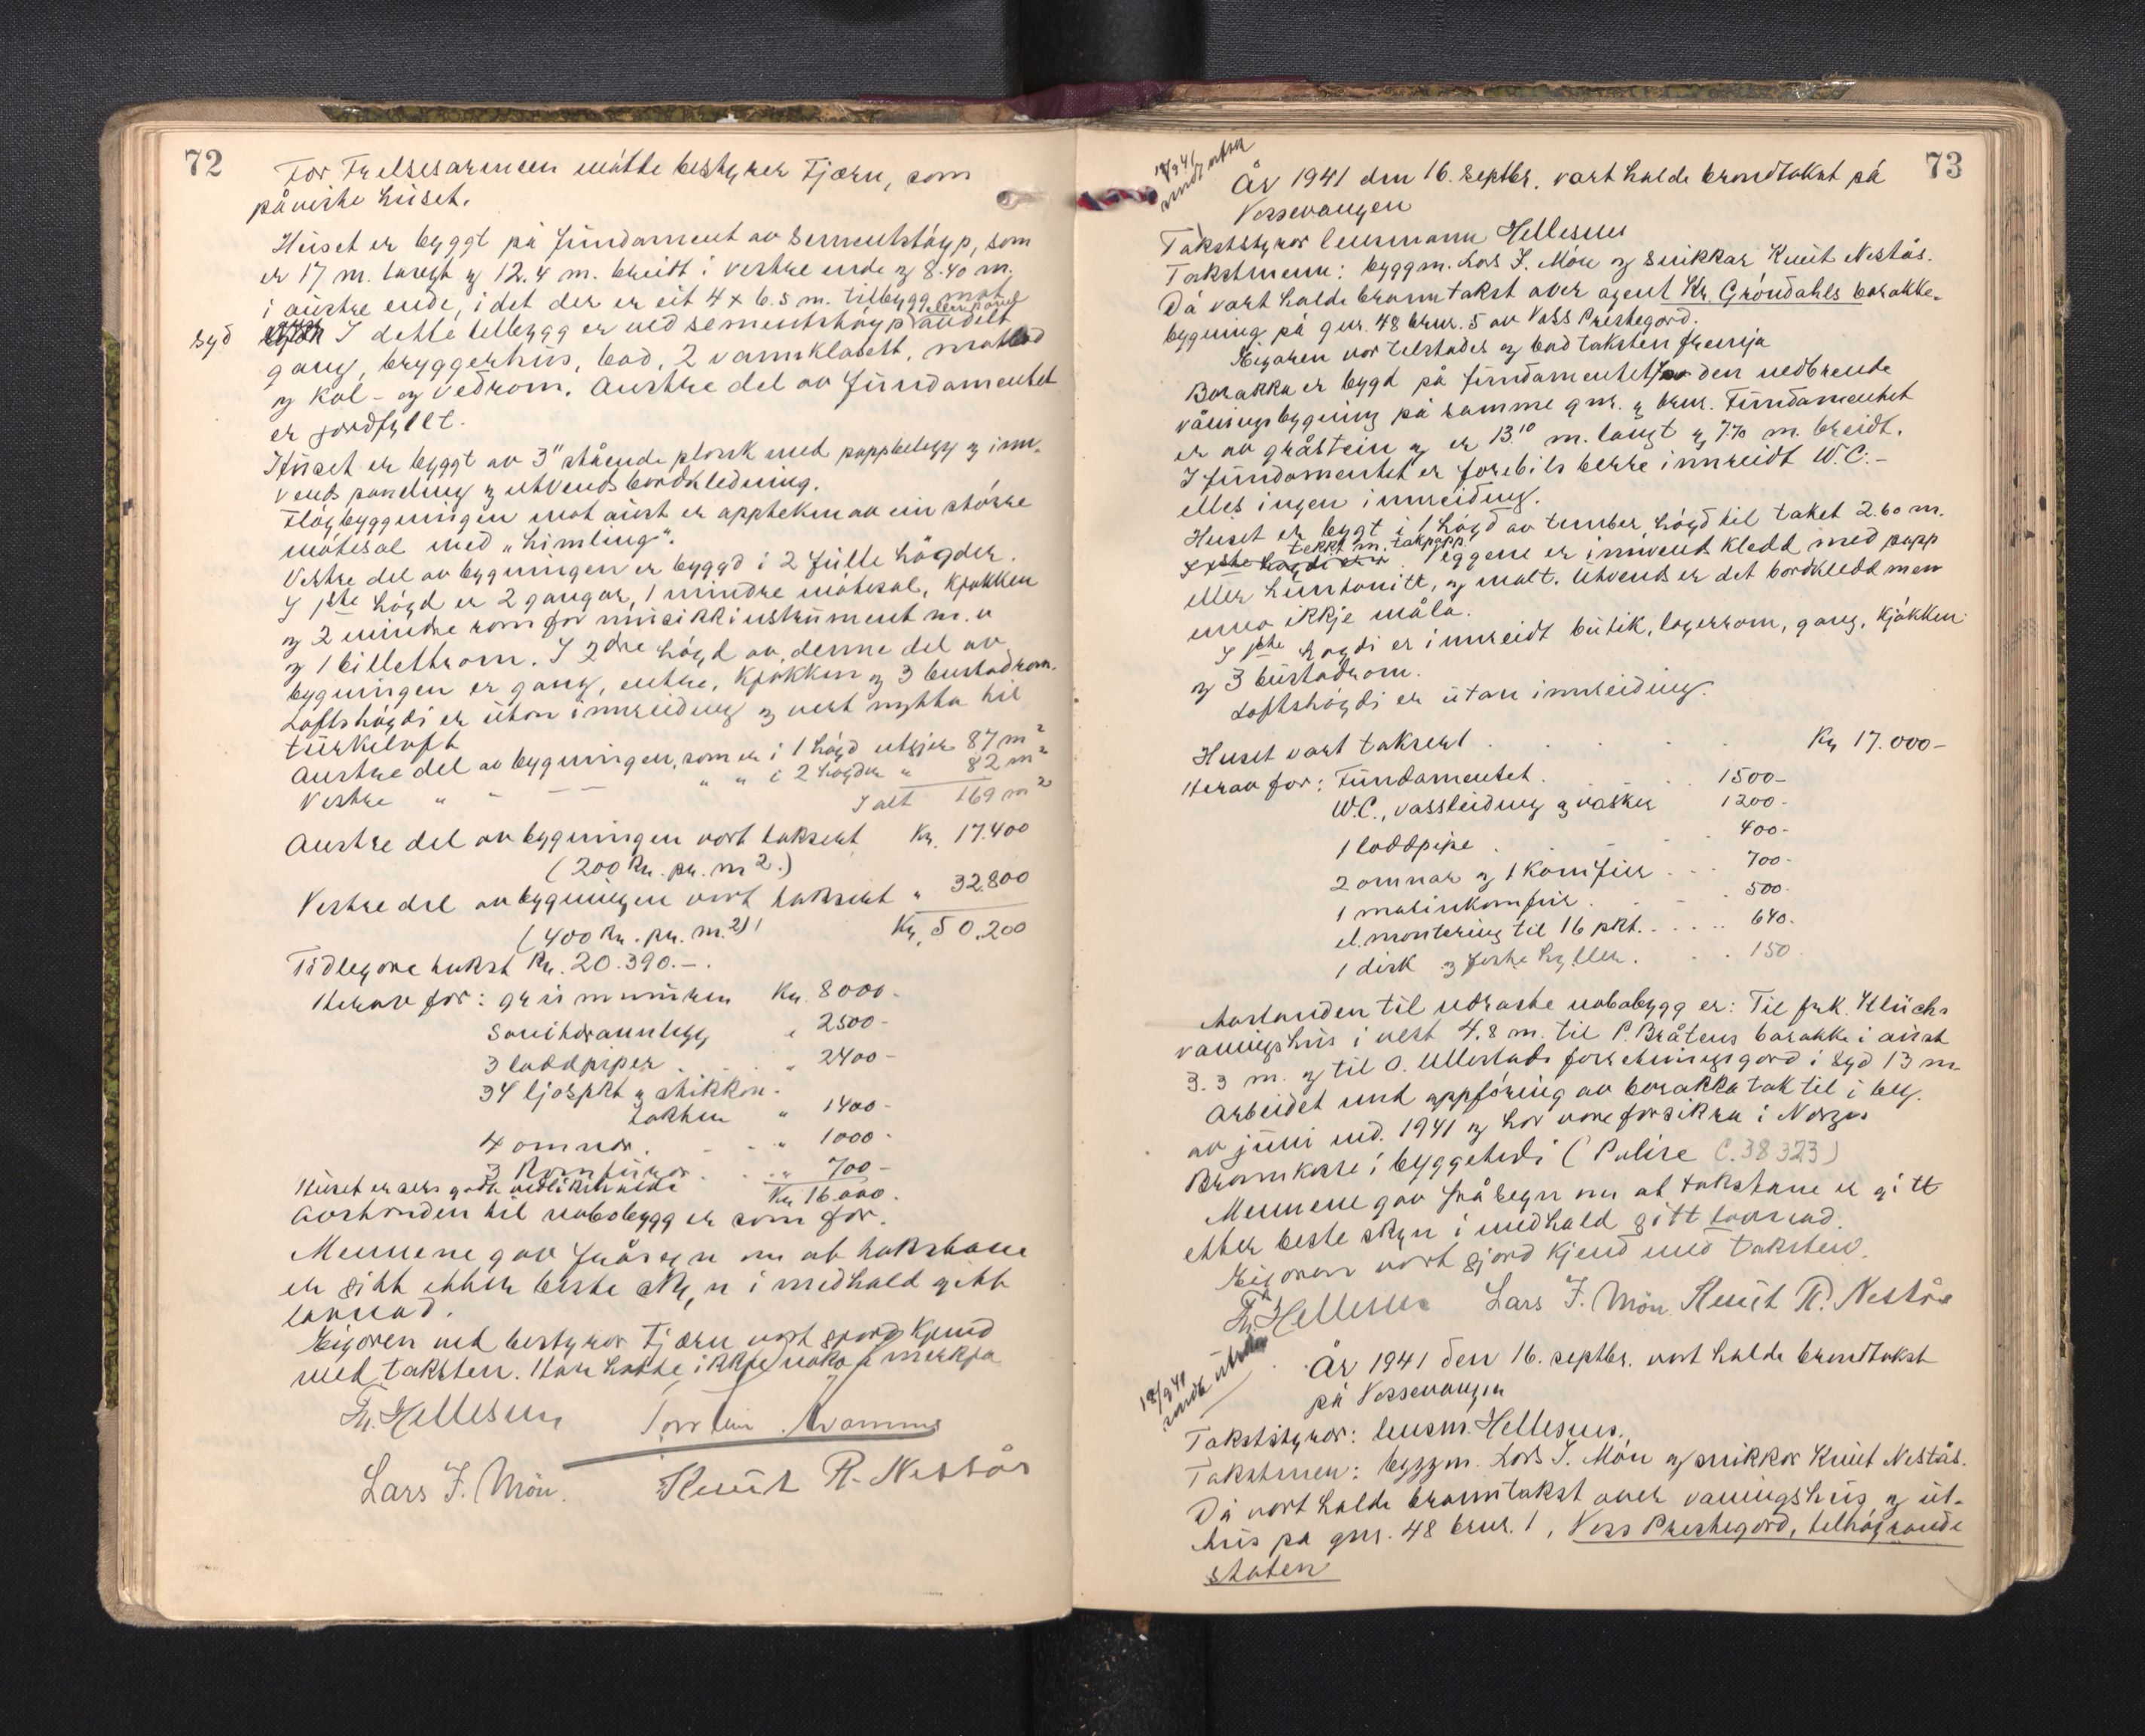 72
For Frelsesarmeen møtte bestyrer Tjærn, som
påviste huset.
Huset er byggt på fundament av sementstøyp, som
er 17 m. langt og 12.4 m. breidt i vestre ende og 8.40 m.
i austre ende, i det der er eit 4 x 6.5 m. tilbygg mot
syd I dette tilbygg er ved sementstøyp andelt
gang, bryggerhus, bad, 2 vannklosett, matbod
og kol- og vedrom. Austre del av fundamentet
er jordfyllt.
Huset er byggt av 3" stående plank med pappbelegg og inn-
vends paneling og utvends bordkledning.
Fløybyggningen mot aust er oppteken av ein større
møtesal med „himling".
Vestre del av bygningen er byggd i 2 fulle høgder.
I 1ste høgd er 2 gangar, 1 mindre møtesal, kjøkken
og 2 mindre rom for musikkinstrument m.v
og 1 billettrom. I 2dre høgd av denne del av
bygningen er gang, entre, kjøkken og 3 bustadrom.
Loftshøgdi er utan innreiding og vert nytta til
turkeloft
Austre del av bygningen, som er i 1 høgd utgjer 87 m2
Vestre " " " " i 2 høgder " 82 m2
I alt 169 m2
Austre del av bygningen vart taksert Kr. 17.400
(200 Kr. pr. m2.)
Vestre del av bygningen vart taksert " 32.800
(400 Kr. pr. m.2) Kr. 50.200
Tidlegare takst Kr. 20.390.-.
Herav for: grunnmuren Kr. 8000-
Sanitæranlegg " 2500-
3 loddpiper " 2400-
34 ljospkt og stikkon-
takter " 1400-
4 omnar. " 1000-
3 Komfurar " 700-
Huset er sers godt vedlikehalde Kr. 16.000.
Avstanden til nabobygg er som før.
Mennene gav fråsegn om at takstane
er gitt etter beste skyn i medhald gitt
lovnad.
Eigaren ved bestyrar Tjærn vart gjord kjend
med taksten. Han hadde ikkje noko å merkja
Th. Hellesnes Torstein Kvamme
Lars J. Møn. Knut R. Nestås
73
18/9 41
sendt utsk
År 1941 den 16. septbr. vart halde brandtakst på
Vossevangen
Takststyrar lensmann Hellesnes
Takstmenn: byggm. Lars J. Møn og snikkar Knut Nestås.
Då vart halde branntakst over agent Kr. Grøndahls barakke-
bygning på gnr. 48 brnr. 5 av Voss Prestegard.
Eigaren var tilstades og bad taksten fremja
Barakka er bygd på fundamentet for den nedbrende
våningsbygning på samme gnr. og brnr. Fundamentet
er av gråstein og er 13.10 m. langt og 7.70 m. breidt.
I fundamentet er forebils berre innreidt W.C.-
elles ingen innreiding.
Huset er bygt i 1 høgd av tømber, høgd til taket 2.60 m.
tekkt m. takpapp.
I 1ste høgdi er Veggene er innvent kledd med papp
eller huntonitt, og malt. Utvends er det bordkledd men
enno ikkje måla.
I 1ste høgdi er innreidt butik, lagerrom, gang, kjøkken
og 3 bustadrom.
Loftshøgdi er utan innreiding.
Huset vart taksert Kr 17.000-
Herav for: Fundamentet. 1500-
W.C., vassleiding og vasker 1200-
1 loddpipe 400-
2 omnar og 1 komfur 700-
1 matinkomfur. 500-
el. montering til 16 pkt. 640.
1 disk og faste hyller. 150
Avstanden til næraste nabobygg er: Til frk. Klüchs
vaningshus i vest 4.8 m. til P. Bråtens barakke i aust
3.3 m. og til O. Ullestads forretningsgard i syd 13 m
Arbeidet med oppføring av barakka tok til i beg.
av juni md. 1941 og har vore forsikra i Norges
Brannkasse i byggetidi (Polise C. 38 323)
Mennene gav fråsegn om at takstane er gitt
etter beste skyn i medhald gitt lovnad.
Eigaren vart gjord kjend med taksten.
Th. Hellesnes Lars J. Møn Knut R. Nestås
18/9 41
sendt utskr
År 1941 den 16. septbr. vart halde brandtakst
på Vossevangen
Takststyrar: lensm. Hellesnes.
Takstmen: byggm. Lars J. Møn og snikkar Knut Nestås.
Då vart halde branntakst over vaningshus og ut-
hus på gnr. 48 brnr. 1, Voss Prestegard, tilhøyrande
staten